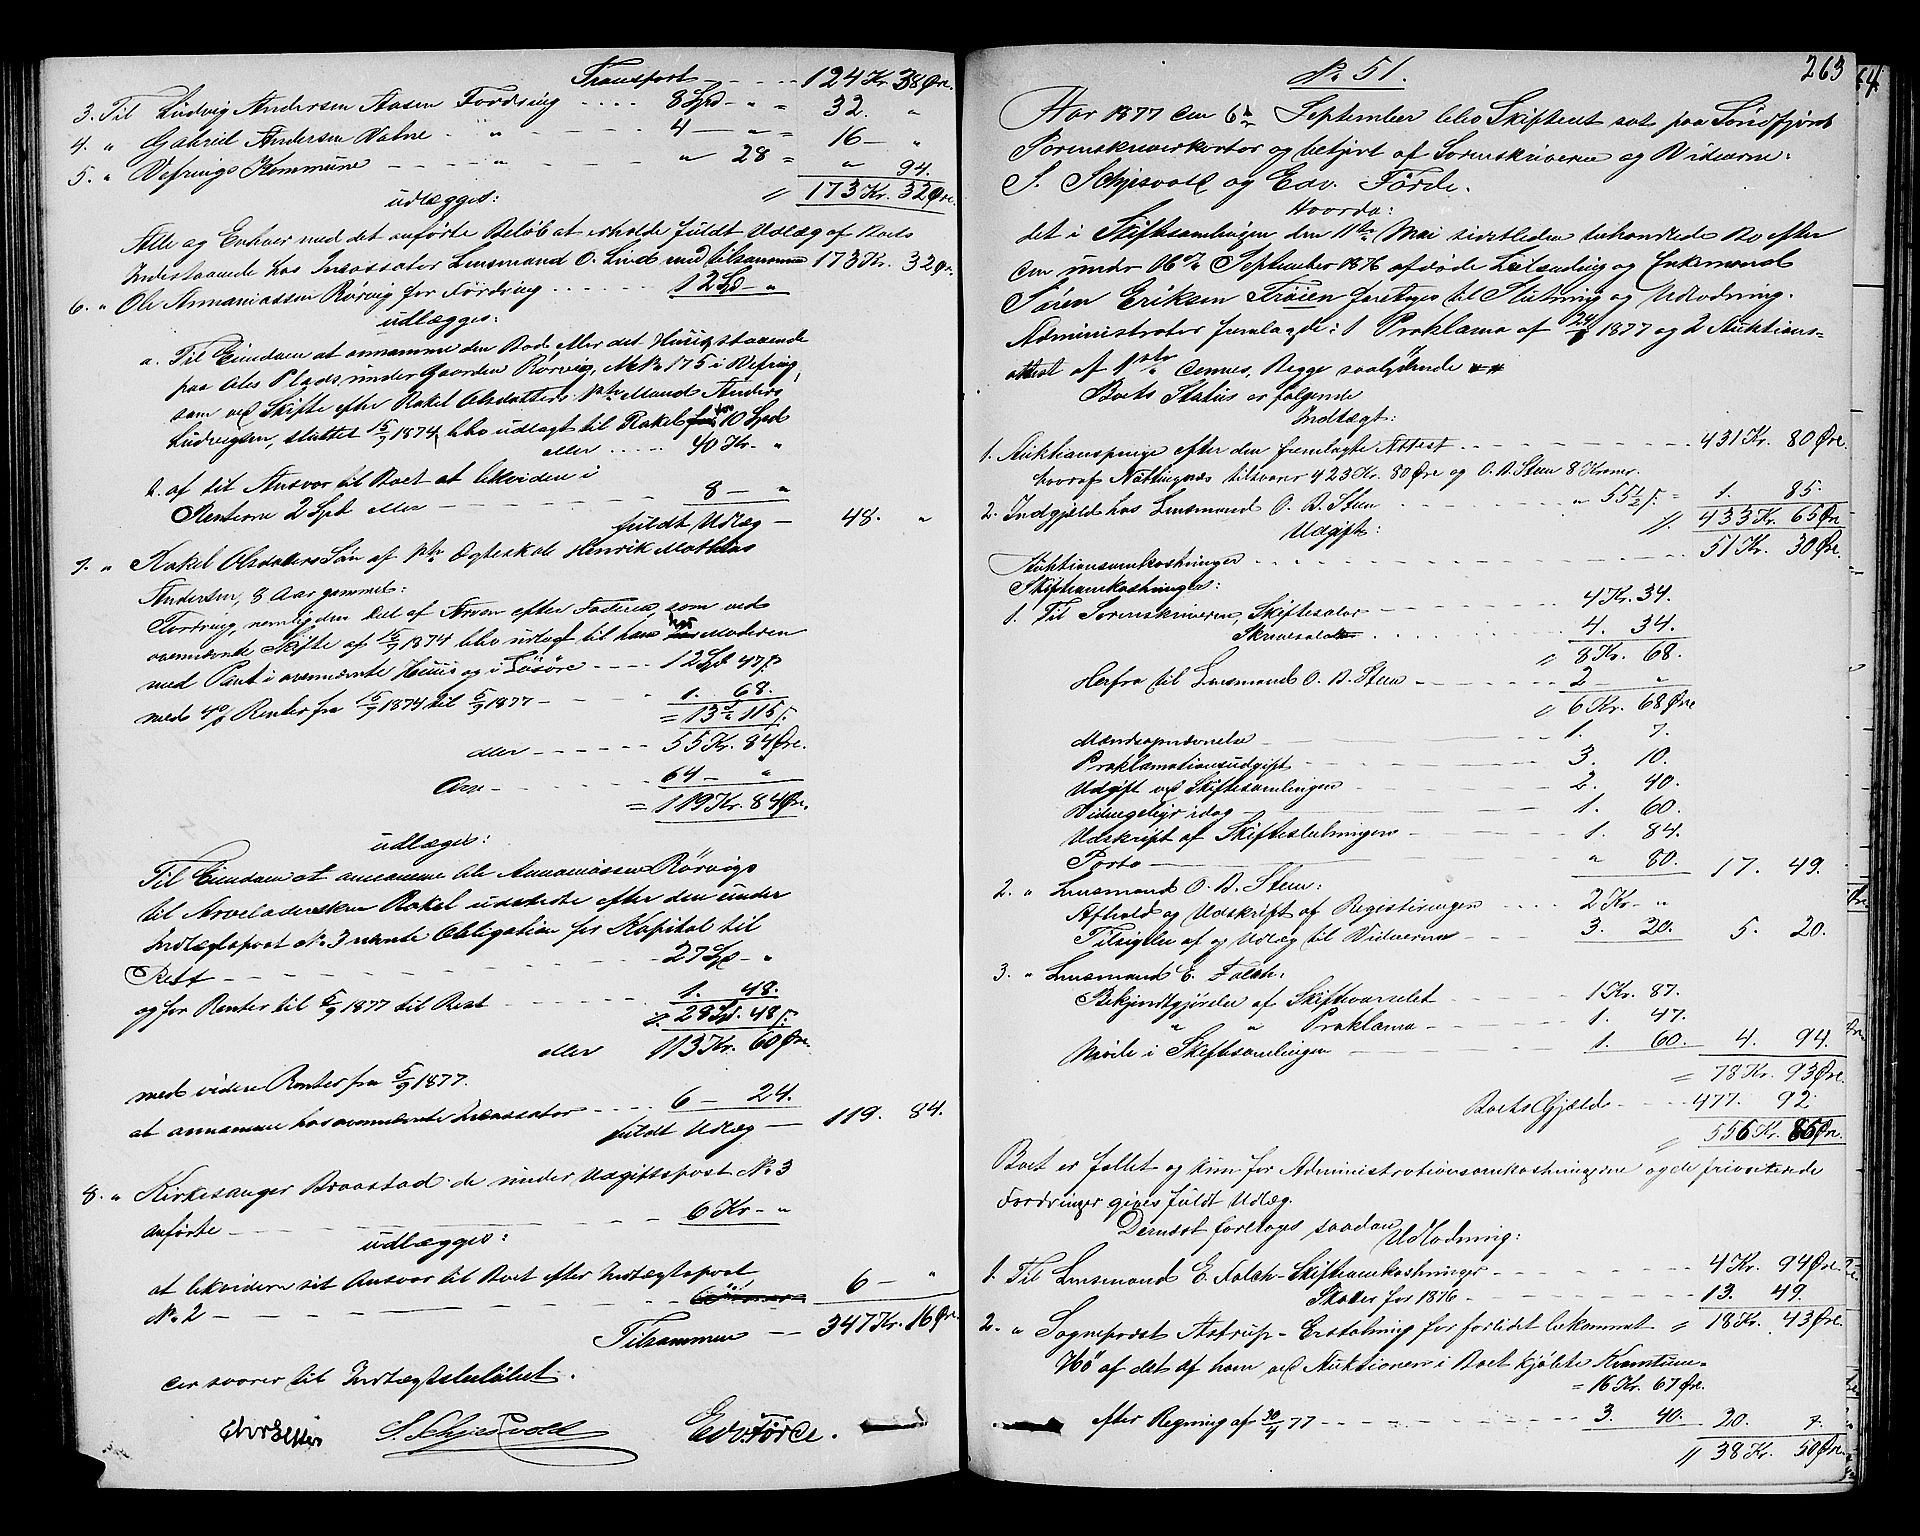 Transport - - - - 124 Kr. 38 Øre.
3. Til Ludvig Andersen Aasen Fordring . . . . 8 Spd - " = 32. "
4. " Gabriel Andersen Valne . " - - - - 4 — " = 16 — "
5. " Vefrings Kommune - - - " - - - - " 28 = " 94.
udlægges: " 173 Kr. 32 Øre.
Alle og Enhver med det anførte Beløb at erholde fuldt Udlæg af Boets
Indestaaende hos Incassator Lensmand O. Lind med tilsammen 173 Kr. 32 Ør.
6. " Ole Annaniassen Rørvig for Fordring . . . . . . 12 Spd - "
udlægges:
a. Til Eiendom at annamme den Bod eller det Huus staaende
paa Oles Plads, under Gaarden Rørvig, M. No 175 i Vefring,
som ved Skifte efter Rakel Olsdatters Mand Anders
Ludvigsen, sluttet 15/9 1874, blev udlagt til Rakel for 10 Spd
eller . . . . . 40 Kr. - "
b. af sit Ansvar til Boet at likvidere i
Renterne 2 Spd eller - - - - - 8 — "
fuldt Udlæg — 48. "
7. " Rakel Olsdatters Søn af Ægteskab Henrik Mathias
Andersen, 8 Aar gammel:
Fordring, nemlig den Del af Arven efter Faderen, som ved
ovennævnte Skifte af 15/9 1874 blev udlagt til hans Moderen
med Pant i ovennævnte Huus og i Løsøre - - - - 12 Spd 47 ß
med 4% Renter fra 15/9 1874 til 5/9 1877 - - - 1. 68.
= 13 " 115 ß.
eller - - - - - - 55 Kr. 84 Øre.
Arv - - - - - - - 64 — "
= 119 Kr. 84 Øre.
udlægges:
Til Eiendom at annamme Ole Annaniassen Rørvigs
til Arveladersken Rakel udstedte efter den under
Indtægtspost No 3 nævnte Obligation for Kapital til
Rest - - - - - - - - - 27 Spd - "
og for Renter til 5/9 1877 til Rest - - - - - - 1. 48.
28 Spd. 48 ß.
eller 113 Kr. 60 Øre.
med videre Renter fra 5/9 1877.
at annamme hos ovennævnte Incassator - - - - 6 — 24.
fuldt Udlæg — 119. 84.
8. " Kirkesanger Braastad de under Udgiftspost No 3
anførte - - - - - - - - - 6 Kr. - "
udlægges:
at likvidere sit Ansvar til Boet efter Indtægtspost
No 2 - - - - - - - - 6 — "
Tilsammen — 347 Kr. 16 Ør.
der svarer til Indtægtsbeløbet.
S. Schjesvold Edv. Førde.
263
64
No 51.
Aar 1877 den 6te September blev Skifteret sat paa Søndfjords
Sorenskriverkontor og betjent af Sorenskriveren og Vidnerne:
S. Schjesvold og Edv. Førde.
Hvorda:
det i Skiftesamlingen den 11te Mai sidstleden behandlede Bo efter
den under 16de September 1876 afdøde Selveinding og Enkemand
Søren Eriksen Trøien foretoges til Slutning og Udlodning.
Administrator fremlagde: 1 Proklama af 1877 og 2 Auktions-
attest af 1ste dennes, Begge saalydende **
Boets Status er følgende
Indtægt:
1. Auktionspenge efter den fremlagte Attest - - - - - - 431 Kr. 80 Øre.
hvoraf Nøttingnes tilsvarer 423 Kr. 80 Øre og O. B. Steen 8 Kroner.
2. Indgjeld hos Lensmand O. B. Steen - - - - " 55 1/2 ß. = 1. 85.
" 433 Kr. 65 Øre
Udgift:
Auktionsomkostninger . . . . . . . . . . . . - - - - - 51 Kr. 30 Øre.
Skifteomkostninger:
1. Til Sorenskriveren, Skiftesalær - - - - - - - 4 Kr. 34.
Skriversalær . . . . . . . . 4. 34.
" 8 Kr. 68.
Herfra til Lensmand O. B. Steen - - - - - - 2 — "
" 6 Kr. 68 Øre
Mændsopnævnelse - - - - - - - - - 1. 7.
Proklamationsudgift - - - - - - - 3. 10.
Udgift ved Skiftesamlingen - - - - - - - 2. 40.
Vidnegebyr idag - - - - - - - - - 1. 60.
Udskrift af Skifteslutningen - - - - - - 1. 84.
Porto - - - - - - - - - - - - " 80. 17. 49.
2. " Lensmand O. B. Steen:
Afhold og Udskrift af Registreringen . . . . 2 Kr. - "
Tilsigelse af og Udlæg til Vidnerne - - - 3. 20. 5. 20.
3. " Lensmand E. Falch:
Bekjendtgjørelse af Skiftevarselet - - - - - 1 Kr. 87.
" " Proklama - - - - - - 1. 47.
Møde i Skiftesamlingen - - - - - - - 1. 60. 4. 94.
= 78 Kr. 93 Øre.
Boets Gjæld - - - - 477. 92
" 556 Kr. 85 Øre.
Boet er fallet og kun for Administrationsomkostningerne og de prioriterede
Fordringer gives fuldt Udlæg.
Dernæst foretoges saadan Udlodning:
1. Til Lensmand E. Falch - Skifteomkostninger - - - - - 4 Kr. 94 Øre.
Skatter for 1876 - - - - - - - 13. 49.
2. " Sogneprest Astrup - Erstatning for forlidet bekommet " 18 Kr. 43 Øre.
Hø af det af ham ved Auktionen i Boet kjøbte Kvantum
= 16 Kr. 67 Øre.
efter Regning af 30/4 77 - - - - - - - - 3. 40. 20. 7.
" 38 Kr. 50 Øre.